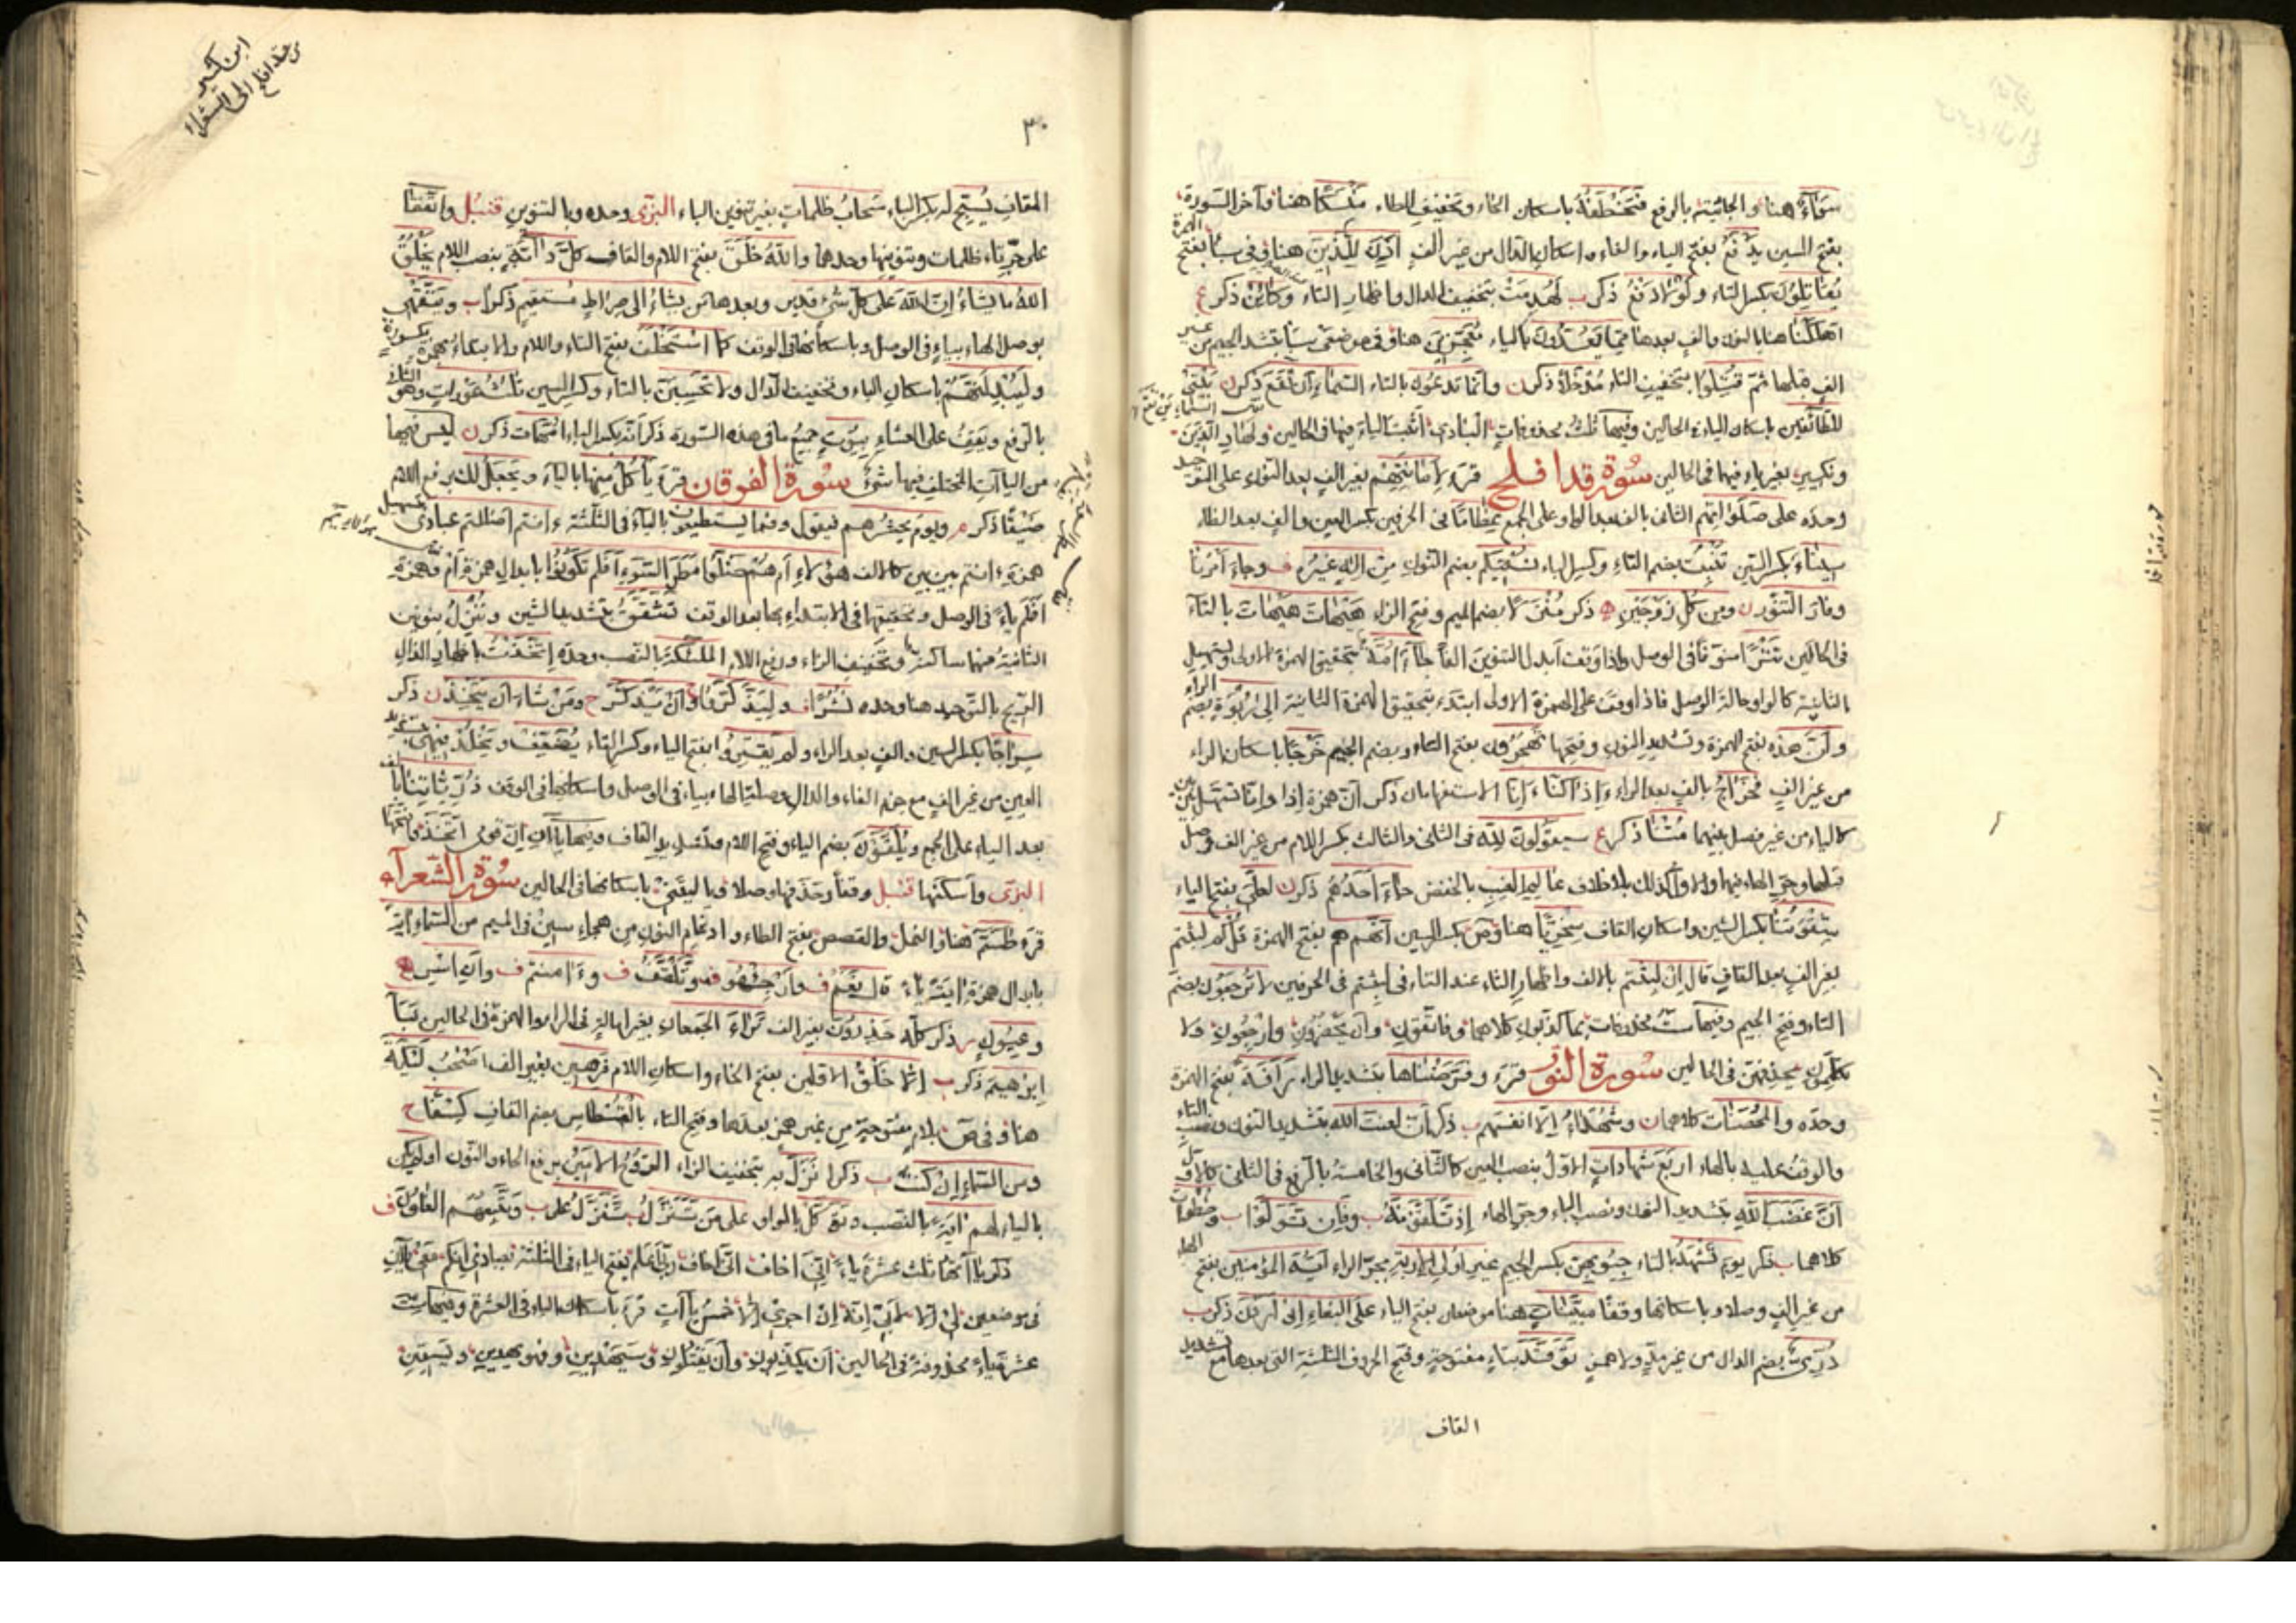 سَوَآءً هنا والجاثية بالرفع فتخطفه باسكان الخاء وتخفيف الطاء منسكا هنا وآخر السورة
بفتح السين يدفع بفتح الياء والفاء واسكان الدال من غير الف أذن للذين هنا وفى سبأ بفتح الهمزة
يقاتلون بكسر التاء ولولا دفع ذكر لهدمت بتخفيف الدال واظهار التاء وكأين ذكر
اهلكناها بالنون والف بعدها مما يعدون بالياء معجزين هنا وفى موضعى سبأ بتشديد الجيم من غير
الف قبلها ثم قتلوا بتخفيف التاء مدخلا ذكر وأنما تدعون بالتاء السماء أن تقع ذكر بيتى
للطائفين باسكان الياء فى الحالين وفيها ثلث محذوفات البادى أثبت الياء فيها فى الحالين ولهاد الذين
ونكير بغير ياء فيهما فى الحالين سورة قد افلح قرء لأمانتهم بغير الف بعد النون على التوحيد
وحده على صلواتهم الثانى بالف بعد الواو على الجمع عظاما فى الحرفين بكسر العين والف بعد الظاء
سيناء بكسر السين تنبت بضم التاء وكسر الباء نسقيكم بضم النون من اله غيره وجاء أمرنا
وفار التنور ومن كل زوجين ذكر منزلا بضم الميم وفتح الزاء هيهات هيهات بالتاء
فى الحالين تترا منونا فى الوصل واذا وقف أبدل التنوين الفا جاء أمة بتحقيق الهمزة الاولى وتسهيل
الثانية كالواو حالة الوصل فاذا وقف على الهمزة الاولى ابتدء بتحقيق الهمزة الثانية الى ربوة بضم الراء
وأن هذه بفتح الهمزة وتشديد النون وفتحها تهجرون بفتح التاء وبضم الجيم خرجا باسكان الراء
من غير الف فخراج بالف بعد الراء ءاذا كنا ءانا الاستفهامان ذكر
كالياء من غير فصل بينهما متنا ذكر سيقولون لله فى الثانى والثالث بكسر اللام من غير الف
قبلها وجر الهاء فيهما والاول كذلك بلا خلاف عالم الغيب بالخفض جاء أحدهم ذكر لعلى بفتح الياء
شقوتنا بكسر الشين واسكان القاف سخريا هنا وص بكسر السين أنهم هم بفتح الهمزة قل كم لبثتم
بغير الف بعد القاف قال إن لبثتم بالف واظهار الثاء عند التاء فى لبثتم فى الحرفين لا ترجعون بضم
التاء وفتح الجيم وفيها ست محذوفات بما كذبون كلاهما وفاتقون وأن يحضرون وارجعون ولا
تكلمون بحذفهن فى الحالين سورة النور قرء وفرضناها بتشديد الراء رأفة بفتح الهمزة
وحده والمحصنات كلاهما وشهداء الا انفسهم ذكر أن لعنت الله بتشديد النون ونصب التاء
والوقف عليه بالهاء اربع شهادات الاول بنصب العين كالثانى والخامسة بالرفع فى الثانى كالاول
أن غضب الله بتشديد النون ونصب الباء وجر الهاء إذ تلقونه وفان تولوا وخطوات
كلاهما ذكر يوم تشهد بالتاء جيوبهن بكسر الجيم غير أولى الاربة بجر الراء أيه المؤمنين بفتح الهاء
من غير الف وصلا وباسكانها وقفا مبينات هنا موضعان بفتح الياء على البغاء إن أردن ذكر
درى بضم الدال من غير مد ولا همز توقد بتاء مفتوحة وفتح الحروف الثلثة التى بعدها مع تشديد
القاف
ابن كثير
من قد افلح الى الشعراء
٣٠
القاف يسبح له بكسر الباء سحاب ظلمات بغير تنوين الباء البزى وحده وبالتنوين قنبل واتفقا
على جر تاء ظلمات وتنوينها وحدهما والله خلق بفتح اللام والقاف كل دابة بنصب اللام يخلق
الله ما يشاء إن الله على كل شئ قدير وبعدها من يشاء الى صراط مستقيم ذكرا ويتقه
بوصل الهاء بياء فى الوصل وباسكانها فى الوقف كما استخلف بفتح التاء واللام والابتداء بهمزة مكسورة
وليبدلنهم باسكان الباء وتخفيف الدال ولا تحسبن بالتاء وكسر السين ثلث عورات وهو الثانى
بالرفع ويقف على العشاء بيوت جميع ما فى هذه السورة ذكر أنه بكسر الباء امهات ذكر ليس فيها
من الياآت المختلف فيها شئ سورة الفرقان قرء يأكل منها بالياء ويجعل لك برفع اللام
ضيقا ذكر ويوم يحشرهم فيقول وفما يستطيعون بالياء فى الثلثة ءانتم اضللتم عبادى بتسهيل
همزة ءانتم بين بين كالالف هؤلاء أم هم ضلوا مطر السوء أفلم تكونوا بابدال همزة
أفلم ياء فى الوصل وتحقيقها فى الابتداء بها بعد الوقف تشقق بتشديد الشين وننزل بنونين
الثانية منهما ساكنة وتخفيف الزاء ورفع اللام الملئكة بالنصب وحده اتخذت باظهار الذال
الريح بالتوحيد هنا وحده نشرا وليذكروا وأن يذكر ومن شاء أن يتخذ ذكر
سراجا بكسر السين والف بعد الراء ولم يقتروا بفتح الياء وكسر التاء يضعف ويخلد فيه بتشديد
العين من غير الف مع جزم الفاء والدال وصلة الهاء بياء فى الوصل واسكانها فى الوقف ذرياتنا بالف
بعد الياء على الجمع ويلقون بضم الياء وفتح اللام وتشديد القاف وفيها ياآن إن قومى اتخذوا فتحها
البزى وأسكنها قنبل وقفا وحذفها وصلا ويا ليتنى باسكانها فى الحالين سورة الشعراء
قرء طسم هنا والنمل والقصص بفتح الطاء وادغام النون من هجاء سين فى الميم من السماء اية
بابدال همزة اية ياء قال نعم وأرجئهو وتلقف وءامنتم وأن اسر
وعيون ذكر كله حذرون بغير الف تراء الجمعان بغير امالة فى الراء والهمزة فى الحالين نبأ
ابرهيم ذكر إلا خلق الاولين بفتح الخاء واسكان اللام فرهين بغير الف اصحب ليكة
هنا وفى ص بلام مفتوحة من غير همز بعدها وفتح التاء بالقسطاس بضم القاف كسفا
من السماء إن كنت ذكرا نزل به بتخفيف الزاء الروح الامين برفع الحاء والنون اولم يكن
بالياء لهم اية بالنصب وتوكل بالواو على من تنزل تنزل على ويتبعهم الغاون
ذكر ياآتها ثلث عشرة ياء إنى اخاف إنى اخاف ربى أعلم بفتح الياء فى الثلثة بعبادى إنكم معى
فى موضعين لى إلا لأبى إنه إن اجرى إلا خمس ياآت قرء باسكان الياء فى العشرة وفيها ست
عشرة ياء محذوفة فى الحالين أن يكذبون وأن يقتلون وسيهدين وفهو يهدين ويسقين